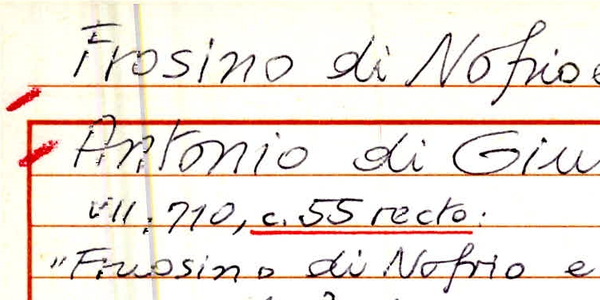 Frosino di Nofrio e
Antonio di Giu
VII. 710, c. 55 recto.
"Fruosino di Nofrio e